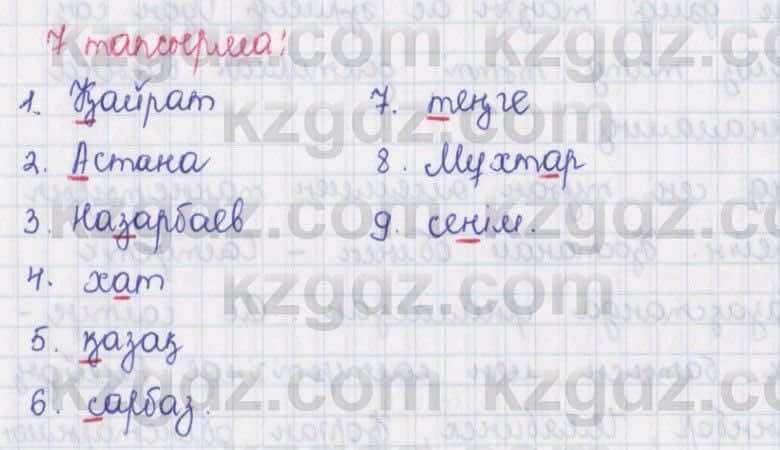 7 тапсырма:
1. Қайрат
2. Астана
3. Назарбаев
4. хат
5. қазақ
6. сарбаз.
7. теңге
8. Мұхтар
9. сенім.
kzgdz.com
kzgdz.com
kzgdz.com
kzgdz.com
kzgdz.com
kzgdz.com